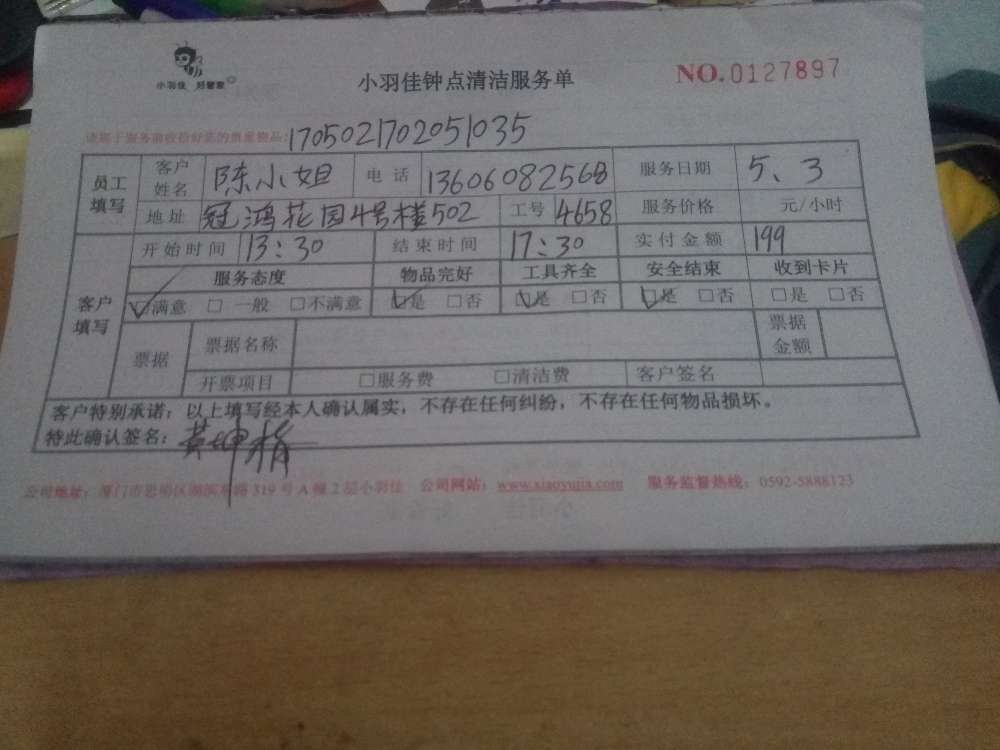 小羽佳 好管家
小羽佳钟点清洁服务单
NO.0127897
请属于服务前收拾好您的贵重物品:1705021702051035
员工填写 客户姓名 陈小姐 电话 13606082568 服务日期 5、3
地址 冠鸿花园4号楼502 工号 4658 服务价格 元/小时
客户填写 开始时间 13:30 结束时间 17:30 实付金额 199
服务态度 物品完好 工具齐全 安全结束 收到卡片
☑满意 □一般 □不满意 ☑是 □否 ☑是 □否 ☑是 □否 □是 □否
票据 票据名称 票据金额
开票项目 □服务费 □清洁费 客户签名
客户特别承诺：以上填写经本人确认属实，不存在任何纠纷，不存在任何物品损坏。
特此确认签名：黄坤
公司地址：厦门市思明区湖滨东路319号A幢2层小羽佳 公司网站：www.xiaoyujia.com 服务监督热线：0592-5888123